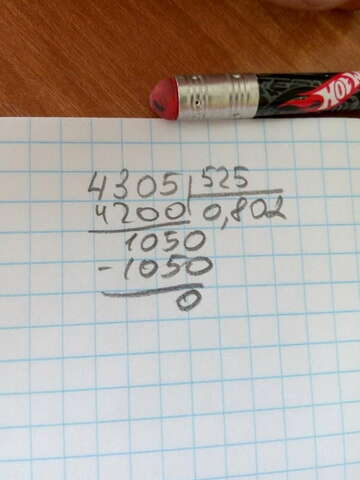 HOT
4305 525
4200 0,802
1050
-1050
0